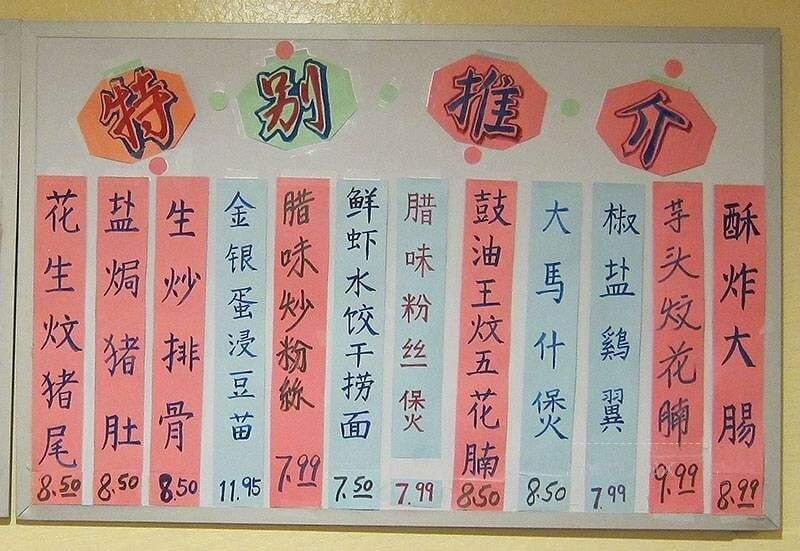 特别推介
花生炆猪尾
8.50
盐焗猪肚
8.50
生炒排骨
8.50
金银蛋浸豆苗
11.95
腊味炒粉絲
7.99
鲜虾水饺干捞面
7.50
腊味粉丝煲
7.99
鼓油王炆五花腩
8.50
大馬什煲
8.50
椒盐鷄翼
7.99
芋头炆花腩
9.99
酥炸大腸
8.99